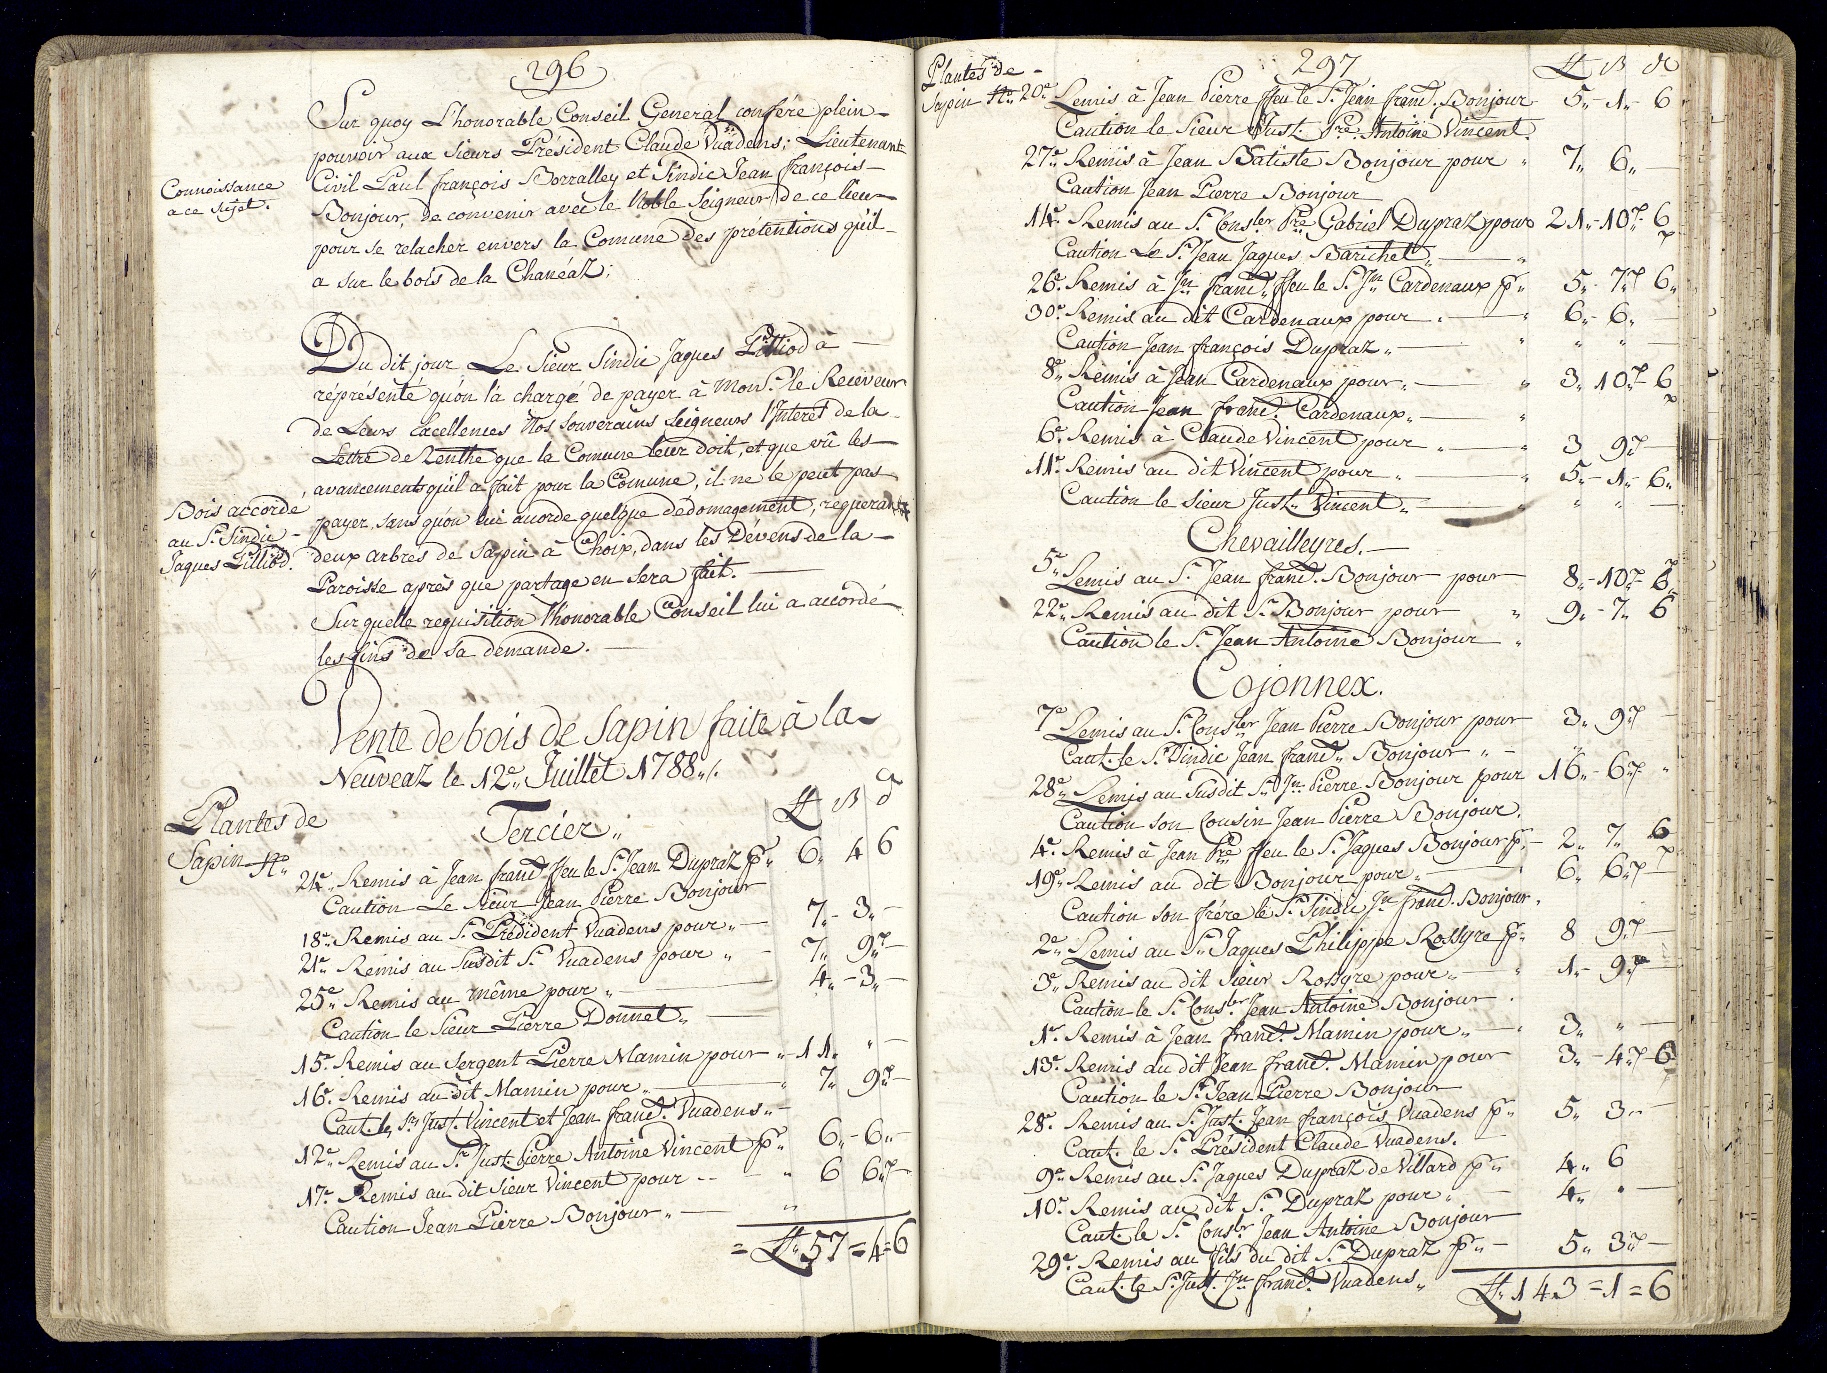 296
Sur quoy L'honorable Conseil General confére plein
pouvoir aux Sieurs Président Claude Vuadens; Lieutenant
Civil Paul françois Borralley et Sindic Jean françois
Connoissance
a ce sujet.
Bonjour, de convenir avec le Noble Seigneur de ce lieu
pour se relacher envers la Comune des prétentions qu'il
a sur le bois de la Chanéaz;
Du dit jour Le Sieur Sindic Jaques Lilliod à
réprésenté qu'on l'a chargé de payer à Mons.r le Receveur
de Leurs Excellences Nos souverains seigneurs l'Interet de la
Lettre de Renthe que la Comune leur doit, et que vû les
avancements qu'il a fait pour la Comune, il ne le peut pas
Bois accordé
au S.r Sindic
Jaques Lilliod.
payer, sans qu'on lui acorde quelque dédomagement, requerant
deux arbres de Sapin à Choix, dans les Dévens de la
Paroisse après que partage en sera fait.
Sur quelle requisition l'honorable Conseil lui a accordé
les fins de sa demande.
Vente de bois de Sapin faite à la
Neuveaz le 12.e Juillet 1788./.
Plantes de
Sapin N.o
Tercier
24.e Remis à Jean franc.s ffeu le S.r Jean Dupraz p.r 6 4 6
Caution Le Sieur Jean Pierre Bonjour
18.e Remis au S.r Président Vuadens pour 7 - 3 -
21.e Remis au susdit S.r Vuadens pour 7 9 -
25.e Remis au même pour 4 - 3 -
Caution le Sieur Pierre Donnet
15.e Remis au Sergent Pierre Mamin pour 11 " -
16.e Remis au dit Mamin pour 7 9 -
Caut. les S.rs Just. Vincent et Jean franc.s Vuadens
12.e Remis au S.r Just. Pierre Antoine Vincent p.r 6 - 6 -
17.e Remis au dit Sieur Vincent pour 6 6 -
Caution Jean Pierre Bonjour
= 57 = 4 = 6
297
Plantes de
Sapin N.o 20.e Remis à Jean Pierre ffeu le S.r Jean franc.s Bonjour 5 - 1 - 6
Caution le Sieur Just. P.re Antoine Vincent
27.e Remis à Jean Batiste Bonjour pour 7 6 -
Caution Jean Pierre Bonjour
14.e Remis au S.r Cons.ler P.re Gabriel Dupraz pour 21 - 10 - 6
Caution Le S.r Jean Jaques Barichet
26.e Remis à J.n franc.s ffeu le S.r J.n Cardenaux p.r 5 - 7 6
30.e Remis au dit Cardenaux pour 6 - 6 -
Caution Jean françois Dupraz
8.e Remis à Jean Cardenaux pour 3 10 - 6
Caution Jean franc.s Cardenaux
6.e Remis à Claude Vincent pour 3 9 -
11.e Remis au dit Vincent pour 5 - 1 - 6
Caution le Sieur Just. Vincent
Chevailleyres.
5.e Remis au S.r Jean franc.s Bonjour pour 8 - 10 - 6
22.e Remis au dit S.r Bonjour pour 9 - 7 - 6
Caution le S.r Jean Antoine Bonjour
Cojonnex.
7.e Remis au S.r Cons.ler Jean Pierre Bonjour pour 3 9 -
Caut. le S.r Sindic Jean franc.s Bonjour
28.e Remis au Susdit S.r J.n Pierre Bonjour pour 16 - 6
Caution son Cousin Jean Pierre Bonjour.
4.e Remis à Jean P.re ffeu le S.r Jaques Bonjour p.r 2 7 6
19.e Remis au dit Bonjour pour 6 6 -
Caution son frére le S.r Sindic J.n franc.s Bonjour
2.e Remis au S.r Jaques Philippe Rossyre p.r 8 9 -
3.e Remis au dit Sieur Rossyre pour 1 - 9 -
Caution le S.r Cons.r Jean Antoine Bonjour
1.e Remis à Jean franc.s Mamin pour 3 " -
13.e Remis au dit Jean franc.s Mamin pour 3 - 4 - 6
Caution le S.r Jean Pierre Bonjour
28.e Remis au S.r Just. Jean françois Vuadens p.r 5 3 -
Caut. le S.r Président Claude Vuadens.
9.e Remis au S.r Jaques Dupraz de Villard p.r 4 6
10.e Remis au dit S.r Dupraz pour 4 " -
Caut. le S.r Cons.r Jean Antoine Bonjour
29.e Remis au fils du dit S.r Dupraz p.r 5 3 -
Caut. le S.r Just. J.n franc.s Vuadens
143 = 1 = 6